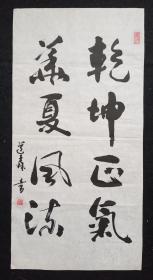 乾坤正氣
華夏風流